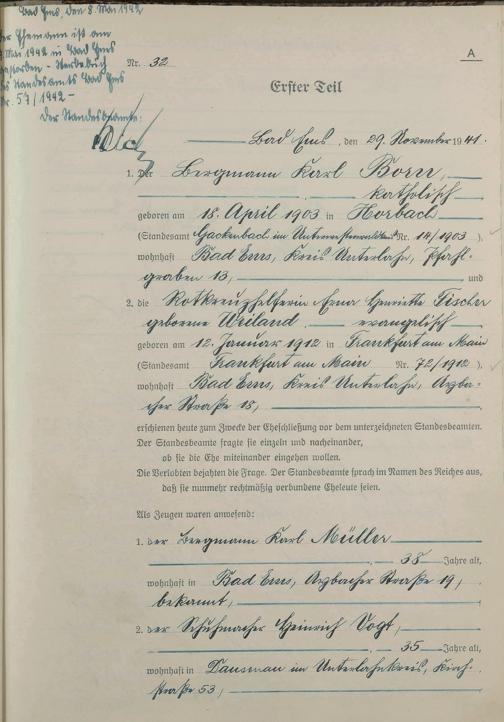 Bad Ems, den 8. Mai 1942
Der Ehemann ist am
Mai 1942 in Bad Ems
gestorben - Sterbebuch
des Standesamts Bad Ems
Nr. 57/1942 -
Der Standesbeamte:
A
Nr. 32
Erster Teil
Bad Ems, den 29. November 1941.
1. Der Bergmann Karl Born,
katholisch
geboren am 18. April 1903 in Horbach
(Standesamt Gackenbach im Unterwesterwaldkreis Nr. 14/1903 ),
wohnhaft Bad Ems, Kreis Unterlahn, Pfahl-
graben 13, und
2. die Rotkreuzhelferin Erna Henriette Fischer
geborene Weiland evangelisch
geboren am 12. Januar 1912 in Frankfurt am Main
(Standesamt Frankfurt am Main Nr. 72/1912 ),
wohnhaft Bad Ems, Kreis Unterlahn, Arzba-
cher Straße 18,
erschienen heute zum Zwecke der Eheschließung vor dem unterzeichneten Standesbeamten.
Der Standesbeamte fragte sie einzeln und nacheinander,
ob sie die Ehe miteinander eingehen wollen.
Die Verlobten bejahten die Frage. Der Standesbeamte sprach im Namen des Reiches aus,
daß sie nunmehr rechtmäßig verbundene Eheleute seien.
Als Zeugen waren anwesend:
1. der Bergmann Karl Müller
38 Jahre alt,
wohnhaft in Bad Ems, Arzbacher Straße 19,
bekannt,
2. der Schuhmacher Heinrich Vogt,
35 Jahre alt,
wohnhaft in Dausenau im Unterlahnkreis, Kirch-
straße 53,